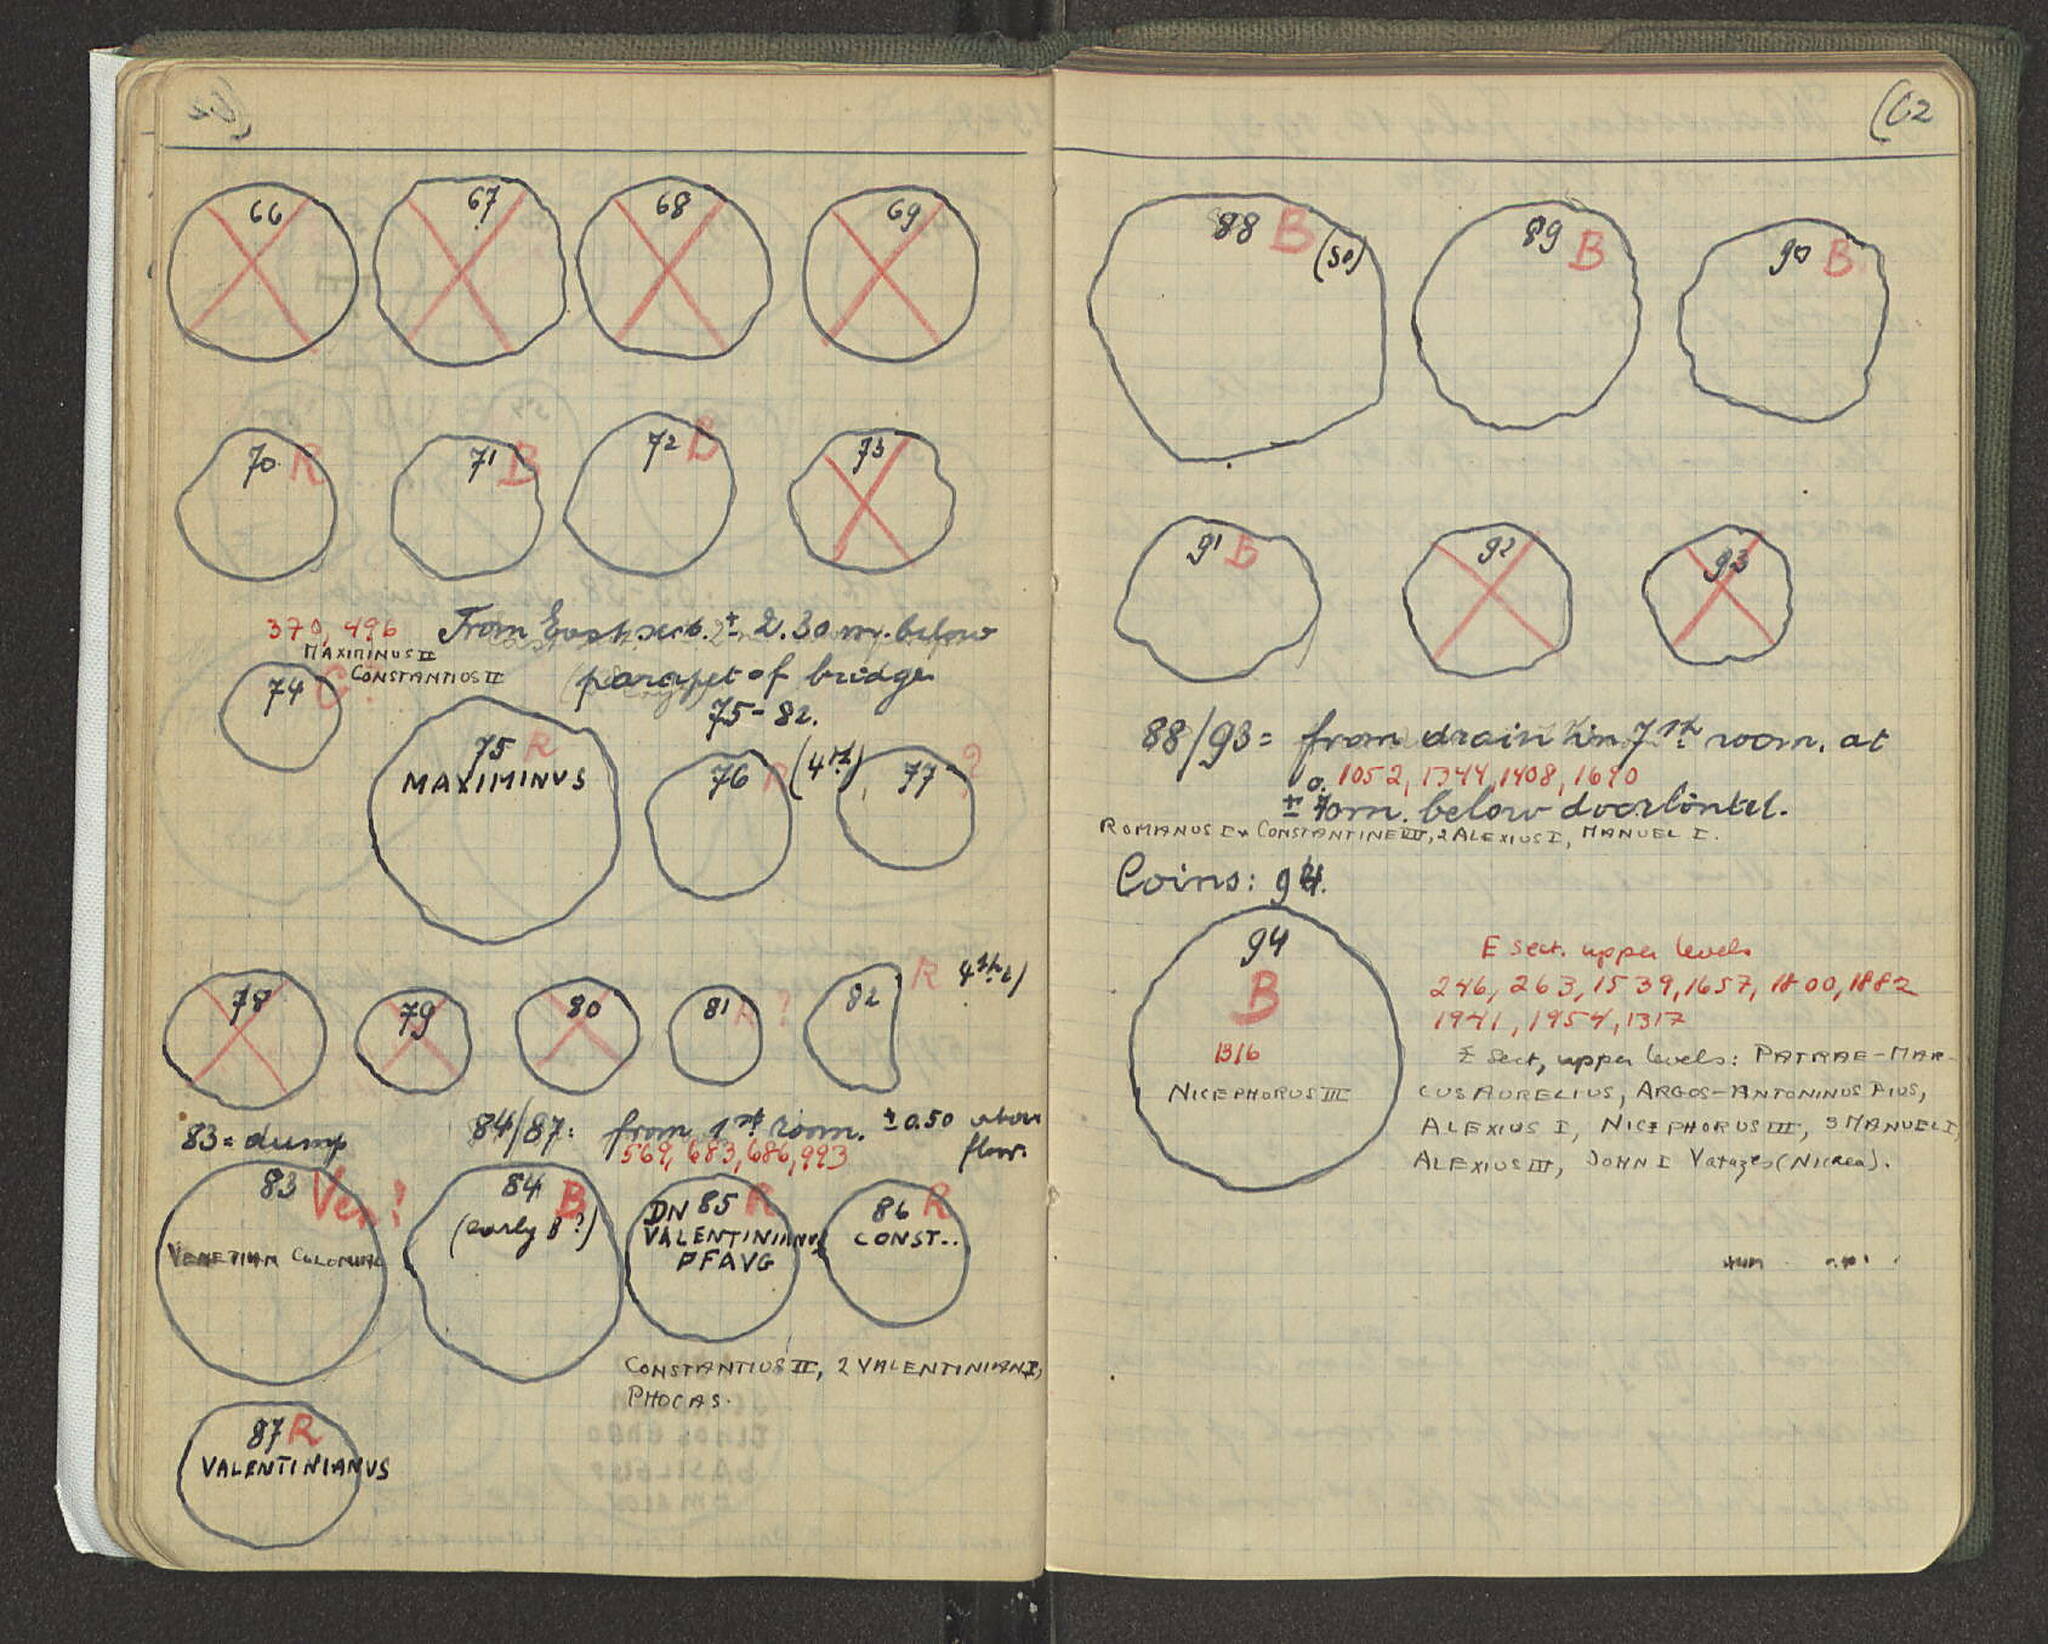 66 67 68 69
70 R 71 B 72 B 73
370, 496 From East sect. ± 2.30 m. below
MAXIMINUS II
CONSTANTIUS II parapet of bridge
75-82.
74 G?
75 R
MAXIMINUS
76 R (4th)
77 ?
78 79 80 81 R ? 82 R 4th c)
83 = dump 84/87: from 1st room. ± 0.50 above
569, 683, 686, 993 floor.
83 Ven!
VENETIAN COLONIAL
84 B
(early B?)
DN 85 R
VALENTINIANVS
PFAVG
86 R
CONST..
CONSTANTIUS II, 2 VALENTINIAN I,
PHOCAS.
87 R
VALENTINIANUS
(62
88 B (S0) 89 B 90 B
91 B 92 93
88/93 = from drain in 7th room. at
1052, 1344, 1408, 1690
± 0.70m. below doorlintel.
ROMANUS I & CONSTANTINE VII, 2 ALEXIUS I, MANUEL I.
Coins: 94.
94
B
1316
NICEPHORUS III
E sect. upper levels
246, 263, 1539, 1657, 1800, 1882
1941, 1954, 1317
E sect, upper levels: PATRAE-MAR-
CUS AURELIUS, ARGOS-ANTONINUS PIUS,
ALEXIUS I, NICEPHORUS III, 3 MANUEL I,
ALEXIUS III, JOHN I Vatazes (Nicaea).